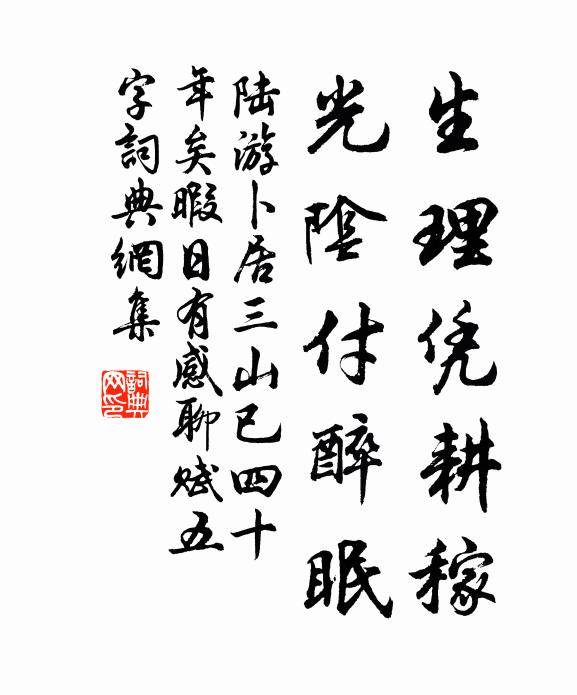 生理凭耕稼
光陰付醉眠
陆游卜居三山已四十
年矣暇日有感聊赋五
字詞典網集
詞典网印